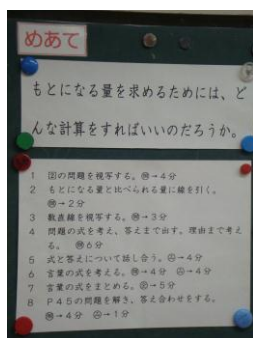 めあて
もとになる量を求めるためには、ど
んな計算をすればいいのだろうか。
1 の問題を視写する。→4分
2 もとになる量と比べられる量に線を引く。
→2分
3 数直線を視写する。→3分
4 問題の式を考え、答えまで出す。理由まで考え
る。 6分
5 式と答えについて話し合う。→4分
6 言葉の式を考える。→4分 →4分
7 言葉の式をまとめる。→5分
8 P45の問題を解き、答え合わせをする。
→4分 →1分